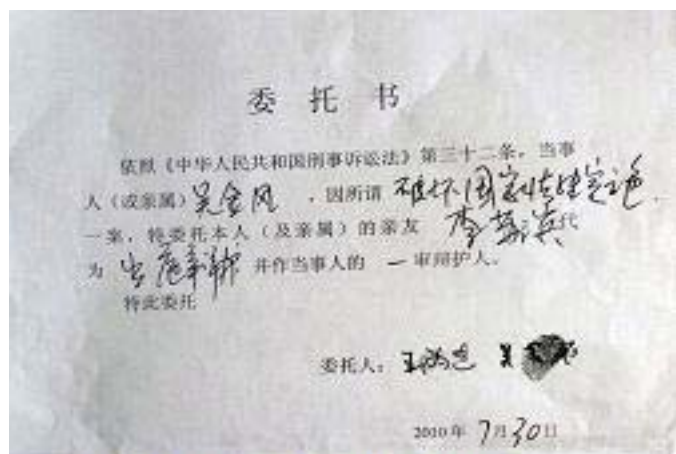 委 托 书
依照《中华人民共和国刑事诉讼法》第三十二条,当事
人(或亲属)吴金凤,因所谓 破坏国家法律实施
一案,特委托本人(及亲属)的亲友 李 代
为 出庭辩护 并作当事人的 一 审辩护人。
特此委托
委托人:王
2010年 7月30日